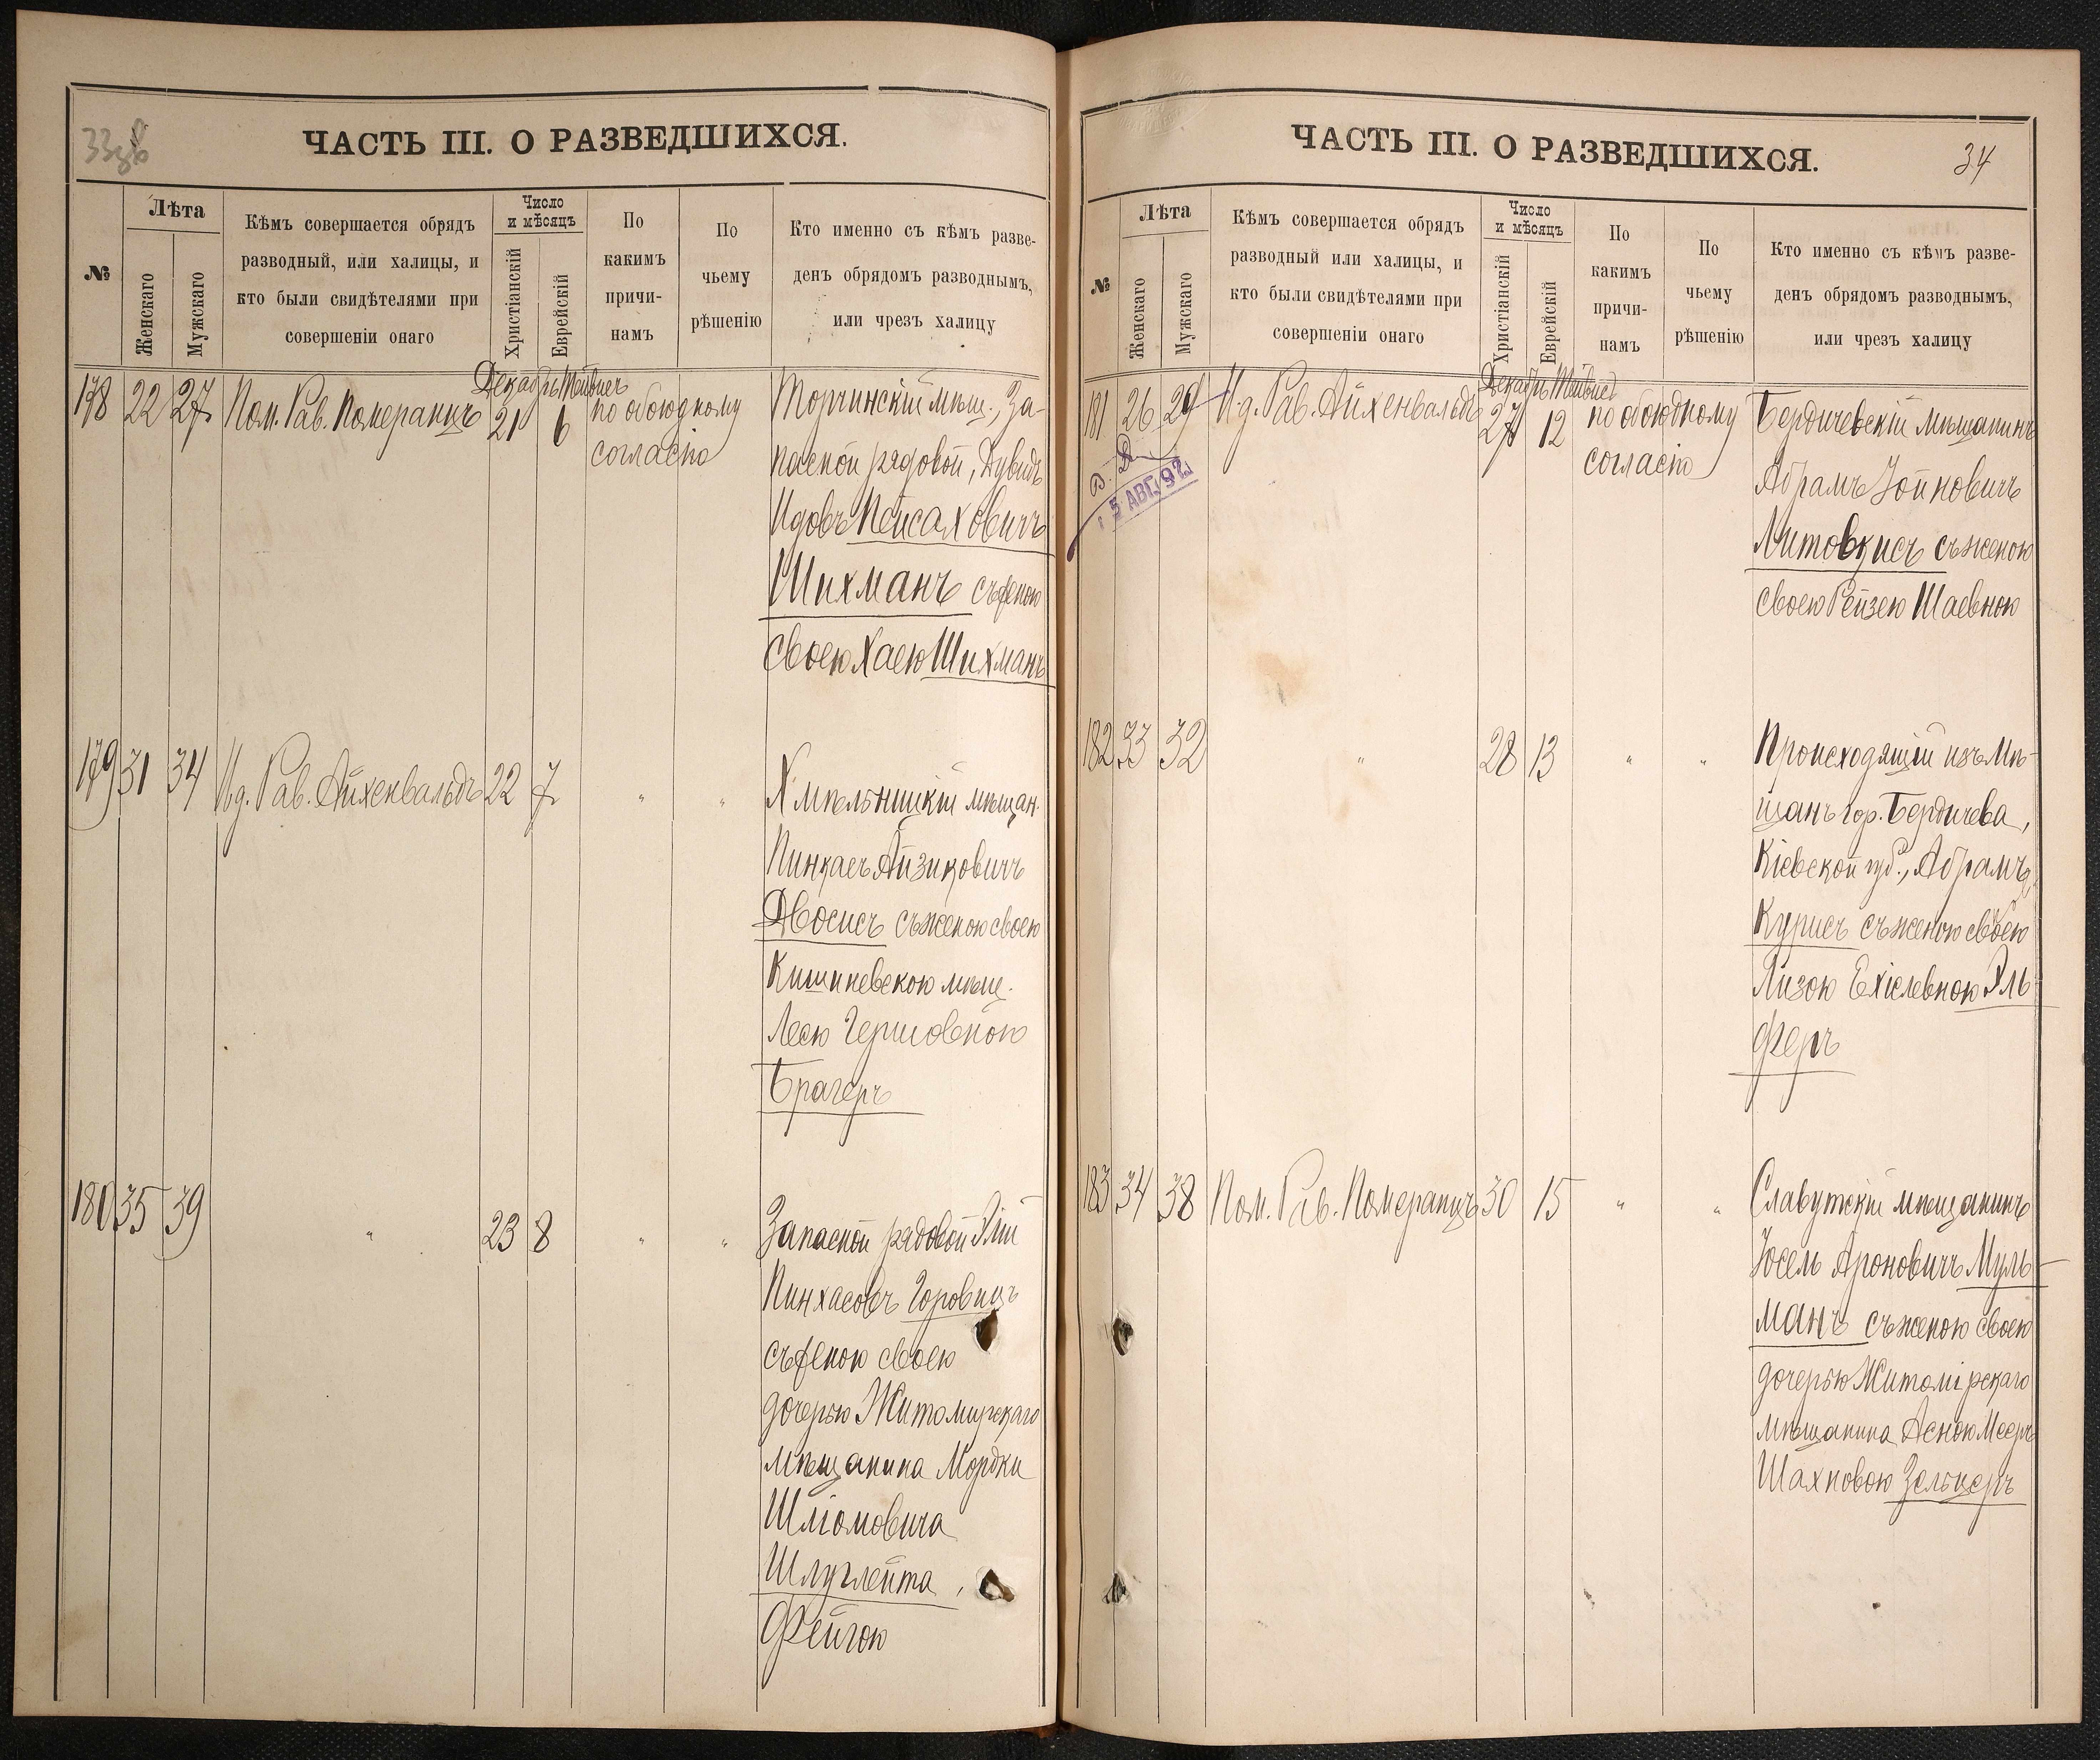 33об
ЧАСТЬ III. О РАЗВЕДШИХСЯ.
№
Лѣта
Женскаго
Мужскаго
Кѣмъ совершается обрядъ
разводный, или халицы, и
кто были свидѣтелями при
совершеніи онаго
Число
и мѣсяцъ
Христіанскій
Еврейскій
По
какимъ
причи-
намъ
По
чьему
рѣшенію
Кто именно съ кѣмъ разве-
денъ обрядомъ разводнымъ,
или чрезъ халицу
Декабрь Тейвес
178 22 27 Пом. Рав. Померанцъ 21 6 по обоюдному
согласію
Торчинскій мѣщ., За-
пасной рядовой, Дувидъ
Идовъ Пейсаховичъ
Шихманъ съ женою
своею Хаею Шихманъ
179 31 34 И.д. Рав. Айхенвальдъ 22 7 " "
Хмѣльницкій мѣщан.
Пинкасъ Айзиковичъ
Двосисъ съ женою своею
Кишиневскою мѣщ.
Леею Гершовною
Брагеръ
180 35 39 " 23 8 " "
Запасной рядовой Элій
Пинхасовъ Горовицъ
съ женою своею
дочерью Житомирскаго
мѣщанина Мордки
Шліомовича
Шлуглейта,
Фейгою
ЧАСТЬ III. О РАЗВЕДШИХСЯ.
34
№
Лѣта
Женскаго
Мужскаго
Кѣмъ совершается обрядъ
разводный или халицы, и
кто были свидѣтелями при
совершеніи онаго
Число
и мѣсяцъ
Христіанскій
Еврейскій
По
какимъ
причи-
намъ
По
чьему
рѣшенію
Кто именно съ кѣмъ разве-
денъ обрядомъ разводнымъ,
или чрезъ халицу
Декабрь Тейвес
181 26 29 И.д. Рав. Айхенвальдъ 27 12 по обоюдному
согласію
В. Д.
5 АВГ. 92
Бердичевскій мѣщанинъ
Абрамъ Іойновичъ
Литовкисъ съ женою
своею Рейзею Шаевною
182 33 32 " 28 13 " "
Происходящій изъ мѣ-
щанъ гор. Бердичева,
Кіевской губ., Абрамъ
Курисъ съ женою своею
Лизою Ехіелевною Эль-
феръ
183 34 38 Пом. Рав. Померанцъ 30 15 " "
Славутскій мѣщанинъ
Іосель Ароновичъ Муль-
манъ съ женою своею
дочерью Житомірскаго
мѣщанина Асною Мееръ
Шахновою Зельцеръ